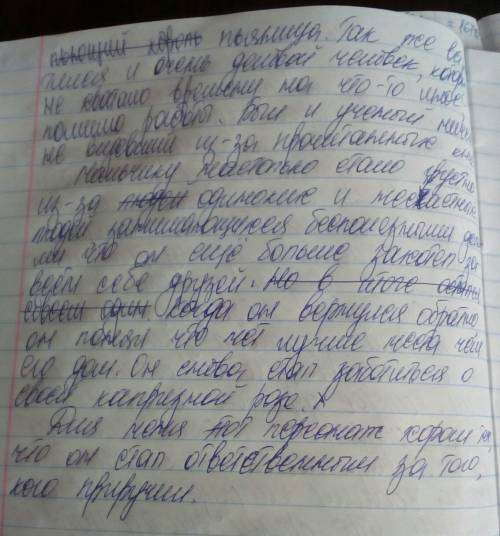 пьющий король пьяница. Так же
и очень деловой человек,
не хватало времени на что-то
помимо работы. Был и ученый
не из-за прочитанных
Мальчику настолько стало грустно
из-за людей одиноких и несчастных
людей занимающихся бесполезными
ми что он ещё больше захотел
себе друзей. Но в итоге
один когда он вернулся обратно
он понял что нет лучше места чем
его дом. Он снова стал заботиться о
своей капризной розе.
Для меня этот персонаж хорош
что он стал ответственным за того,
кого приручил.